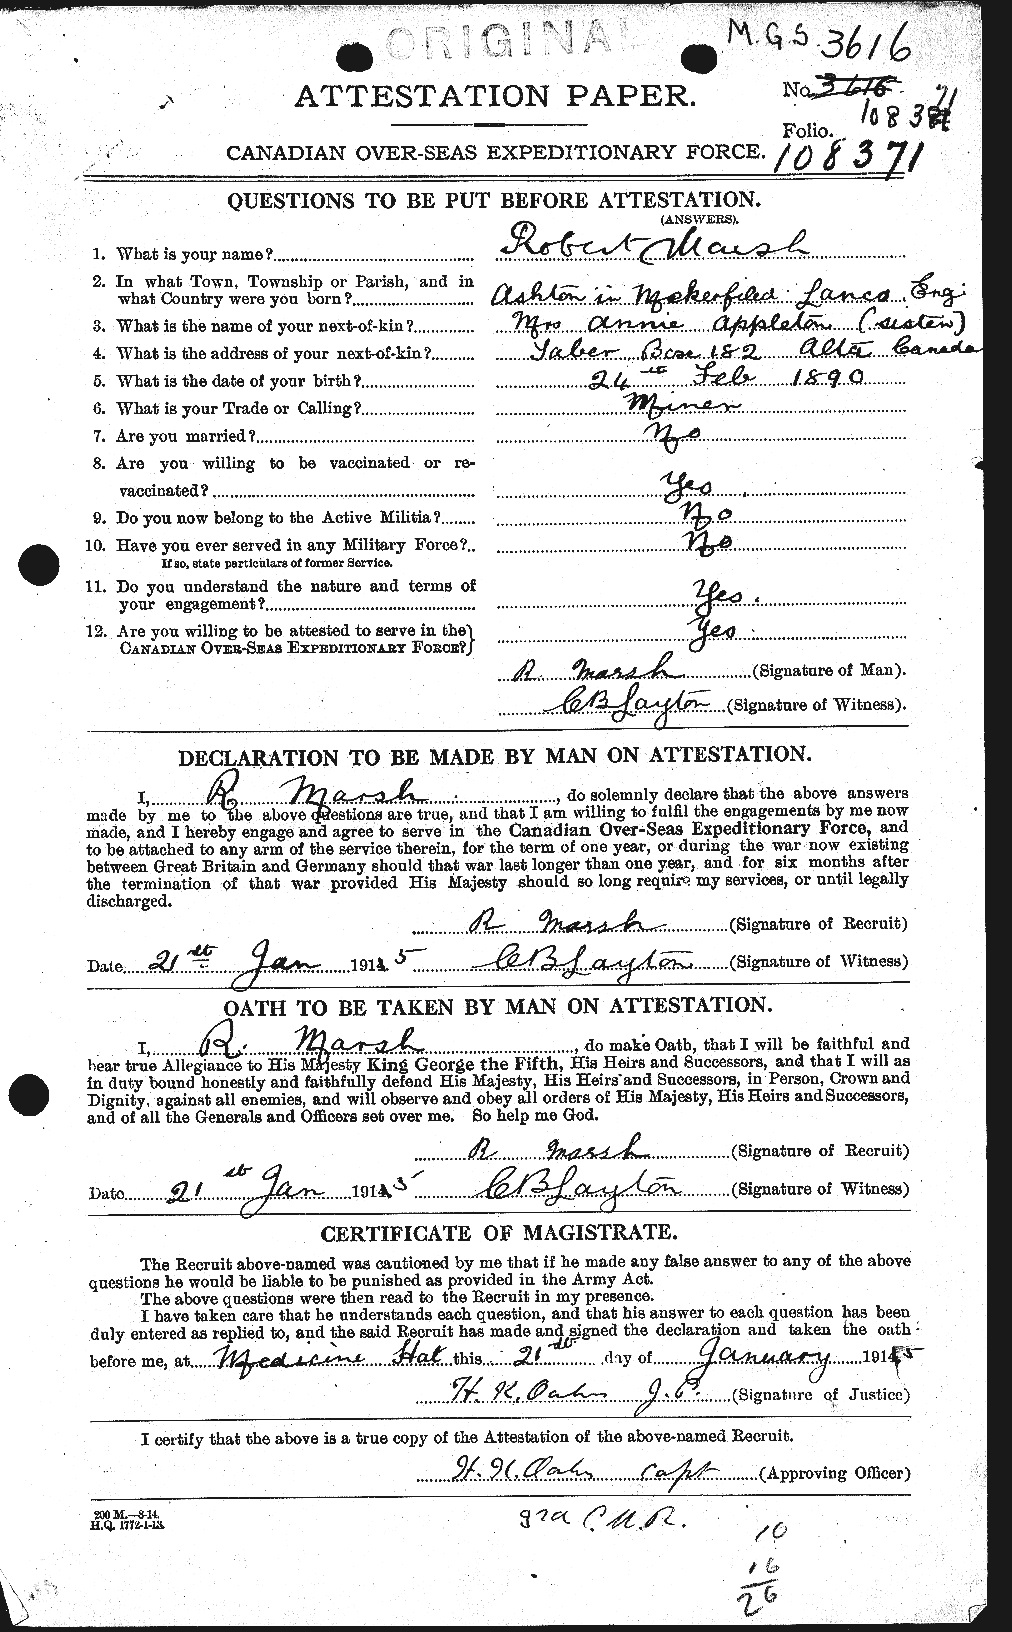 ORIGINAL
M.G.S. 3616
No. 3616
ATTESTATION PAPER.
Folio.
CANADIAN OVER-SEAS EXPEDITIONARY FORCE.
108371
QUESTIONS TO BE PUT BEFORE ATTESTATION.
(ANSWERS).
1. What is your name? Robert Marsh
2. In what Town, Township or Parish, and in
what Country were you born? Ashton in Mekerfield Lancs Eng:
3. What is the name of your next-of-kin? Mrs Annie Appleton (sister)
4. What is the address of your next-of-kin? Taber Box 182 Alta Canada
5. What is the date of your birth? 24th Feb 1890
6. What is your Trade or Calling? Miner
7. Are you married? No
8. Are you willing to be vaccinated or re-
vaccinated? Yes
9. Do you now belong to the Active Militia? No
10. Have you ever served in any Military Force? No
If so, state particulars of former Service.
11. Do you understand the nature and terms of
your engagement? Yes.
12. Are you willing to be attested to serve in the
CANADIAN OVER-SEAS EXPEDITIONARY FORCE? Yes
R Marsh (Signature of Man).
C B Layton (Signature of Witness).
DECLARATION TO BE MADE BY MAN ON ATTESTATION.
I, R Marsh, do solemnly declare that the above answers
made by me to the above questions are true, and that I am willing to fulfil the engagements by me now
made, and I hereby engage and agree to serve in the Canadian Over-Seas Expeditionary Force, and
to be attached to any arm of the service therein, for the term of one year, or during the war now existing
between Great Britain and Germany should that war last longer than one year, and for six months after
the termination of that war provided His Majesty should so long require my services, or until legally
discharged.
R Marsh (Signature of Recruit)
Date 21st Jan 1915 C B Layton (Signature of Witness)
OATH TO BE TAKEN BY MAN ON ATTESTATION.
I, R. Marsh, do make Oath, that I will be faithful and
bear true Allegiance to His Majesty King George the Fifth, His Heirs and Successors, and that I will as
in duty bound honestly and faithfully defend His Majesty, His Heirs and Successors, in Person, Crown and
Dignity, against all enemies, and will observe and obey all orders of His Majesty, His Heirs and Successors,
and of all the Generals and Officers set over me. So help me God.
R Marsh (Signature of Recruit)
Date 21st Jan 1915 C B Layton (Signature of Witness)
CERTIFICATE OF MAGISTRATE.
The Recruit above-named was cautioned by me that if he made any false answer to any of the above
questions he would be liable to be punished as provided in the Army Act.
The above questions were then read to the Recruit in my presence.
I have taken care that he understands each question, and that his answer to each question has been
duly entered as replied to, and the said Recruit has made and signed the declaration and taken the oath
before me, at Medicine Hat this 21st day of January 1915
J.P. (Signature of Justice)
I certify that the above is a true copy of the Attestation of the above-named Recruit.
Capt (Approving Officer)
200 M.—8-14.
H.Q. 1772-1-13.
3rd C.M.R.
10
16
26